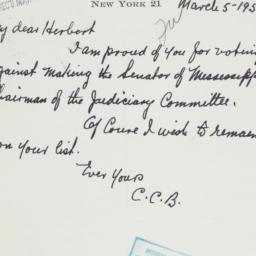 NEW YORK 21
March 5-195
y dear Herbert
I am proud of you for voting
against making the Senator of Mississipp
hairman of the Judiciary Committee.
Of Course I wish to remain
on your list.
Ever Yours
C.C.B.